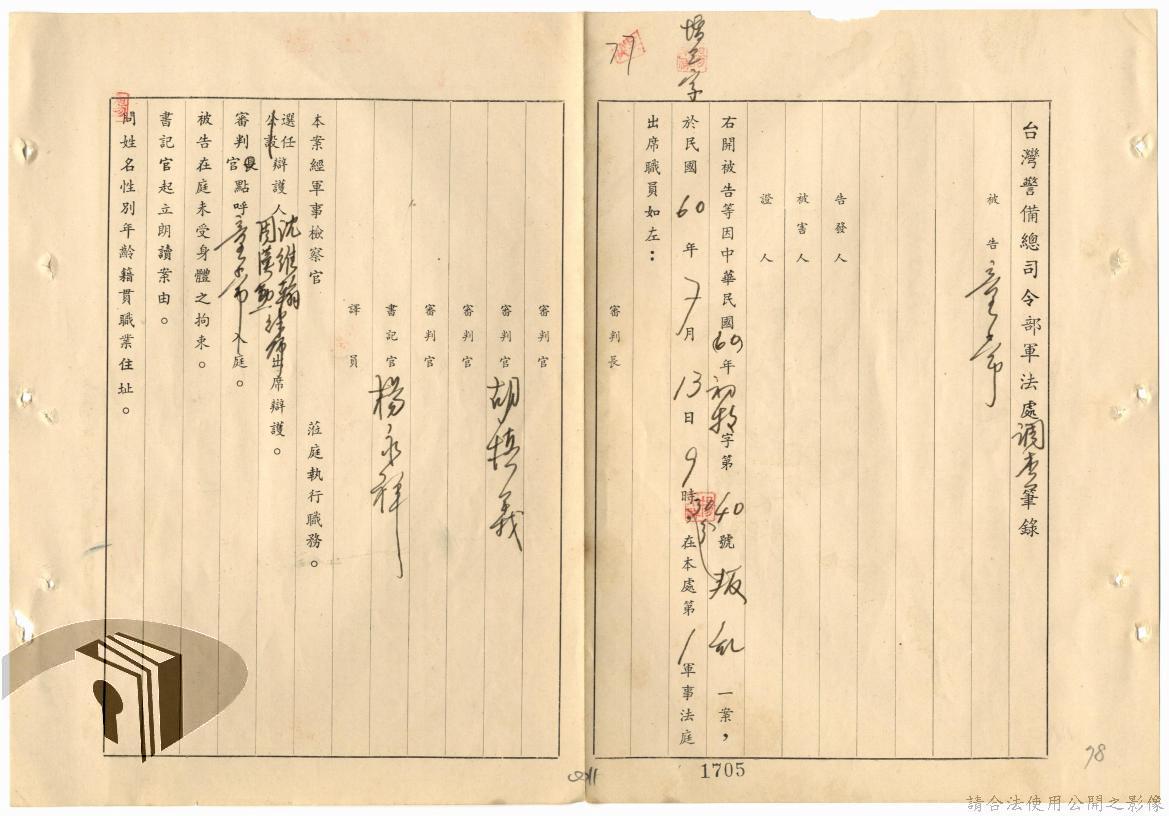 台灣警備總司令部軍法處調查筆錄
被告
告發人
被害人
證人
右開被告等因中華民國60年初特字第40號叛亂一案，
於民國60年7月13日9時30分在本處第1軍事法庭
出席職員如左：
審判長
審判官
審判官 胡慎義
審判官
審判官
書記官 楊永祥
譯員
本案經軍事檢察官 蒞庭執行職務。
選任
公設
辯護人沈維翰 出席辯護。
審判長
官
點呼 入庭。
被告在庭未受身體之拘束。
書記官起立朗讀案由。
問姓名性別年齡籍貫職業住址。
77
1705
78
請合法使用公開之影像